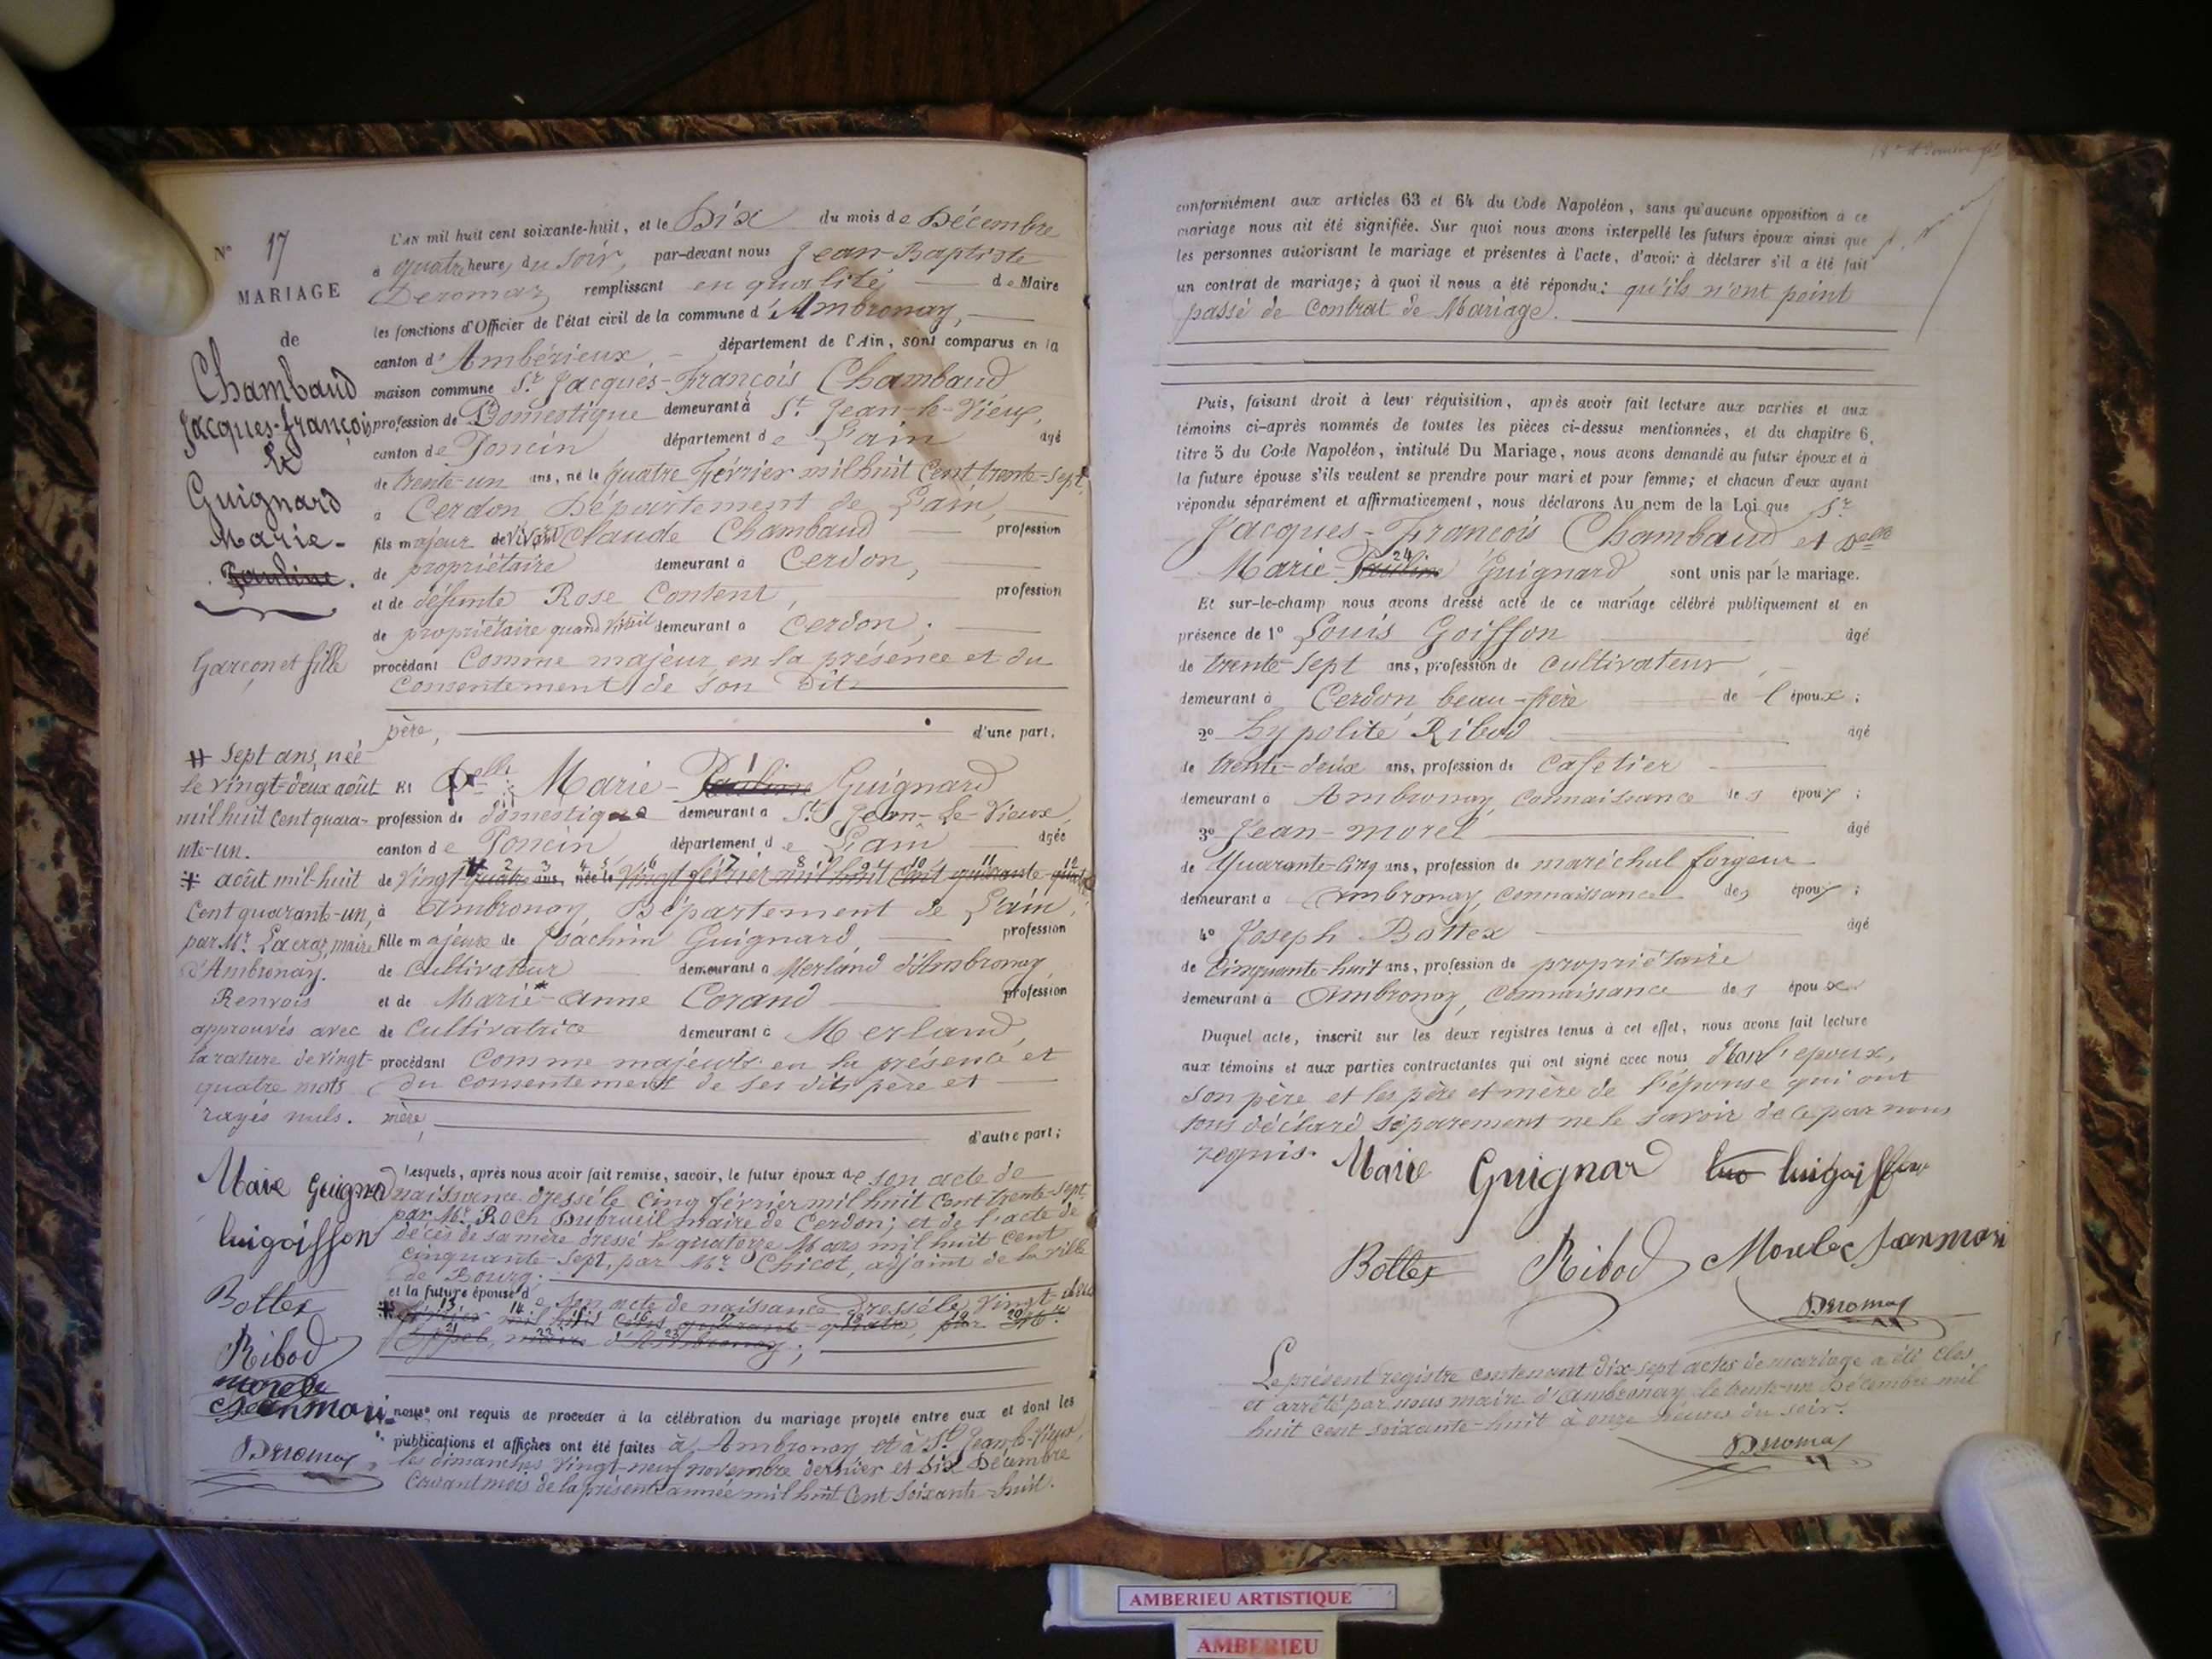 N° 17
MARIAGE
de
Chambaud
Jacques-françois
Et
Guignard
Marie-
Pauline.
Garçon et fille
# Sept ans, née
le vingt-deux août
mil huit cent quara-
nte-un.
* août mil-huit
Cent quarante-un,
par Mr. Lacraz, maire
d'Ambronay.
Renvois
approuvés avec
la rature de vingt-
quatre mots
rayés nuls.
Marie Guignard
luigoiffon
Bottex
Ribod
morele
Jeanmari
Deromas
L'AN mil huit cent soixante-huit, et le Dix du mois de Décembre
à quatre heures du Soir, par-devant nous Jean-Baptiste
Deromaz remplissant en qualité de Maire
les fonctions d'Officier de l'état civil de la commune d'Ambronay,
canton d'Ambérieux département de l'Ain, sont comparus en la
maison commune Sr. Jacques-François Chambaud
profession de Domestique demeurant à St. Jean-le-Vieux,
canton de Poncin département de L'ain âgé
de trente-un ans, né le quatre Février mil huit Cent trente-Sept,
à Cerdon Département de L'ain,
fils majeur de vivant Claude Chambaud profession
de propriétaire demeurant à Cerdon,
et de défunte Rose Content, profession
de propriétaire quand vivait demeurant à Cerdon;
procédant Comme majeur en la présence et du
Consentement de Son Dit
père, d'une part.
Et Delle. Marie-Pauline Guignard
profession de domestique demeurant à St. Jean-Le-Vieux,
canton de Poncin département de L'ain âgée
de Vingt # quatre ans, née le Vingt février mil huit Cent quarante-quatre
à Ambronay, Département de L'ain,
fille majeure de Joachim Guignard, profession
de Cultivateur demeurant à Merland d'Ambronay
et de Marie-Anne Corand profession
de Cultivatrice demeurant à Merland,
procédant Comme majeure en la présence et
du consentement de ses dits père et
mère, d'autre part;
Lesquels, après nous avoir fait remise, savoir, le futur époux de son acte de
naissance dressé le Cinq février mil huit Cent trente-sept,
par Mr. Roch Dubrueil maire de Cerdon; et de l'acte de
décès de sa mère dressé le quatorze Mars mil huit Cent
Cinquante-Sept, par Mr. Chicot, adjoint de la ville
de Bourg;
et la future épouse de Son acte de naissance dressé le Vingt-deux
* février mil huit Cent quarante-quatre, par Mr.
maire d'Ambronay;
nous ont requis de procéder à la célébration du mariage projeté entre eux et dont les
publications et affiches ont été faites à Ambronay et à St. Jean-le-Vieux,
les dimanches Vingt-neuf novembre dernier et Six Décembre
Courant mois de la présente année mil huit Cent Soixante-huit.
conformément aux articles 63 et 64 du Code Napoléon, sans qu'aucune opposition à ce
mariage nous ait été signifiée. Sur quoi nous avons interpellé les futurs époux ainsi que
les personnes autorisant le mariage et présentes à l'acte, d'avoir à déclarer s'il a été fait
un contrat de mariage; à quoi il nous a été répondu: qu'ils n'ont point
passé de Contrat de Mariage.
Puis, faisant droit à leur réquisition, après avoir fait lecture aux parties et aux
témoins ci-après nommés de toutes les pièces ci-dessus mentionnées, et du chapitre 6,
titre 5 du Code Napoléon, intitulé Du Mariage, nous avons demandé au futur époux et à
la future épouse s'ils veulent se prendre pour mari et pour femme; et chacun d'eux ayant
répondu séparément et affirmativement, nous déclarons Au nom de la Loi que Sr.
Jacques-François Chambaud et Delle
Marie-Pauline Guignard sont unis par le mariage.
Et sur-le-champ nous avons dressé acte de ce mariage célébré publiquement et en
présence de 1° Louis Goiffon âgé
de trente-Sept ans, profession de cultivateur
demeurant à Cerdon beau-frère de l'époux;
2° hypolite Ribod âgé
de trente-deux ans, profession de Cafetier
demeurant à Ambronay, Connaissance des époux;
3° Jean-morel âgé
de Quarante-Cinq ans, profession de maréchal forgeur
demeurant à Ambronay, Connaissance des époux;
4° Joseph Bottex âgé
de Cinquante-huit ans, profession de propriétaire
demeurant à Ambronay, Connaissance des époux.
Duquel acte, inscrit sur les deux registres tenus à cet effet, nous avons fait lecture
aux témoins et aux parties contractantes qui ont signé avec nous Non l'époux,
Son père et les père et mère de l'épouse qui ont
tous déclaré séparément ne le savoir de ce par nous
requis.
Marie Guignard luo luigoiffon
Bottex Ribod Morele Jeanmari
Deromas
Le présent registre contenant dix-sept actes de mariage a été clos
et arrêté par nous maire d'Ambronay le trente-un Décembre mil
huit cent soixante-huit à onze heures du soir.
Deromas
AMBERIEU ARTISTIQUE
AMBERIEU